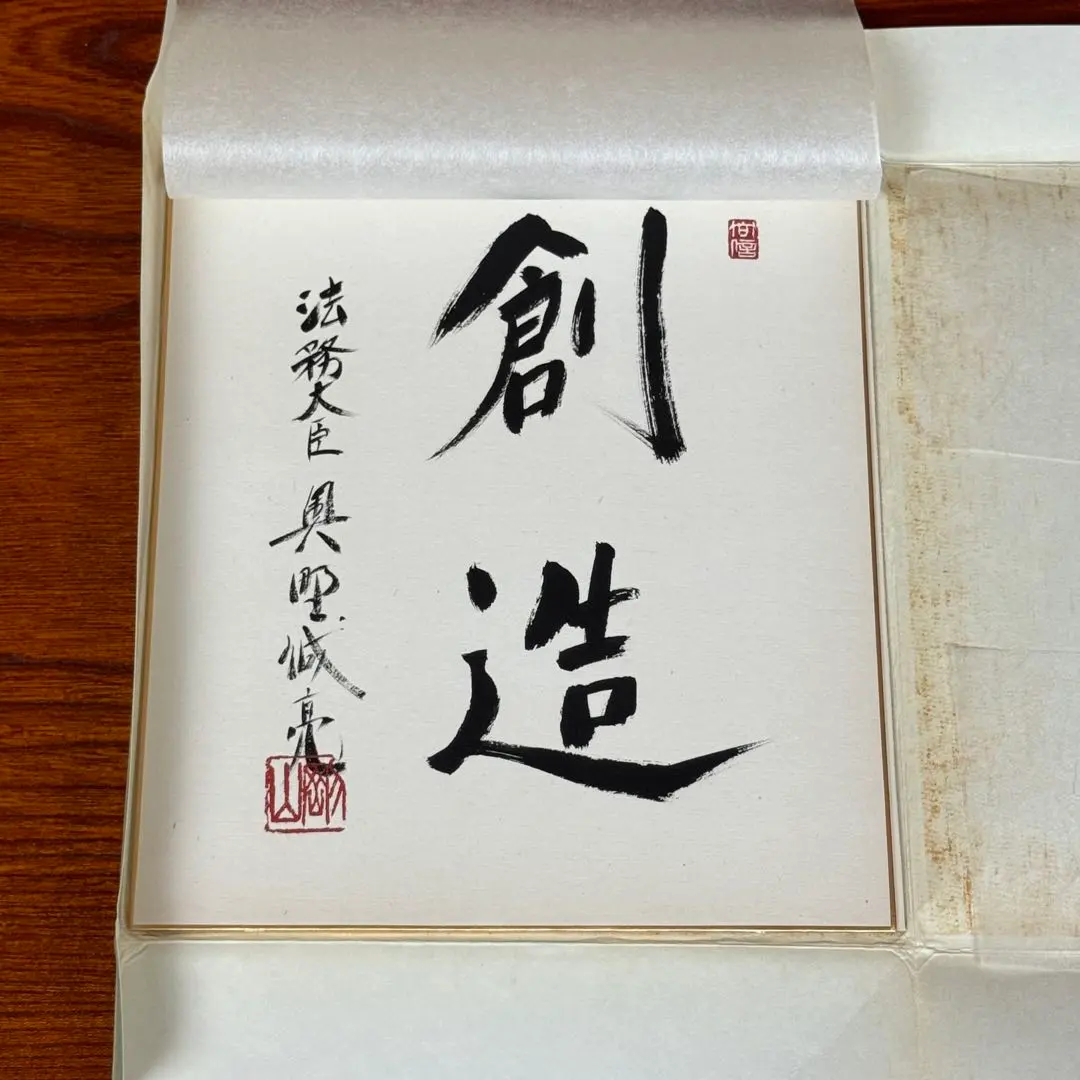 創造
法務大臣 奥野誠亮